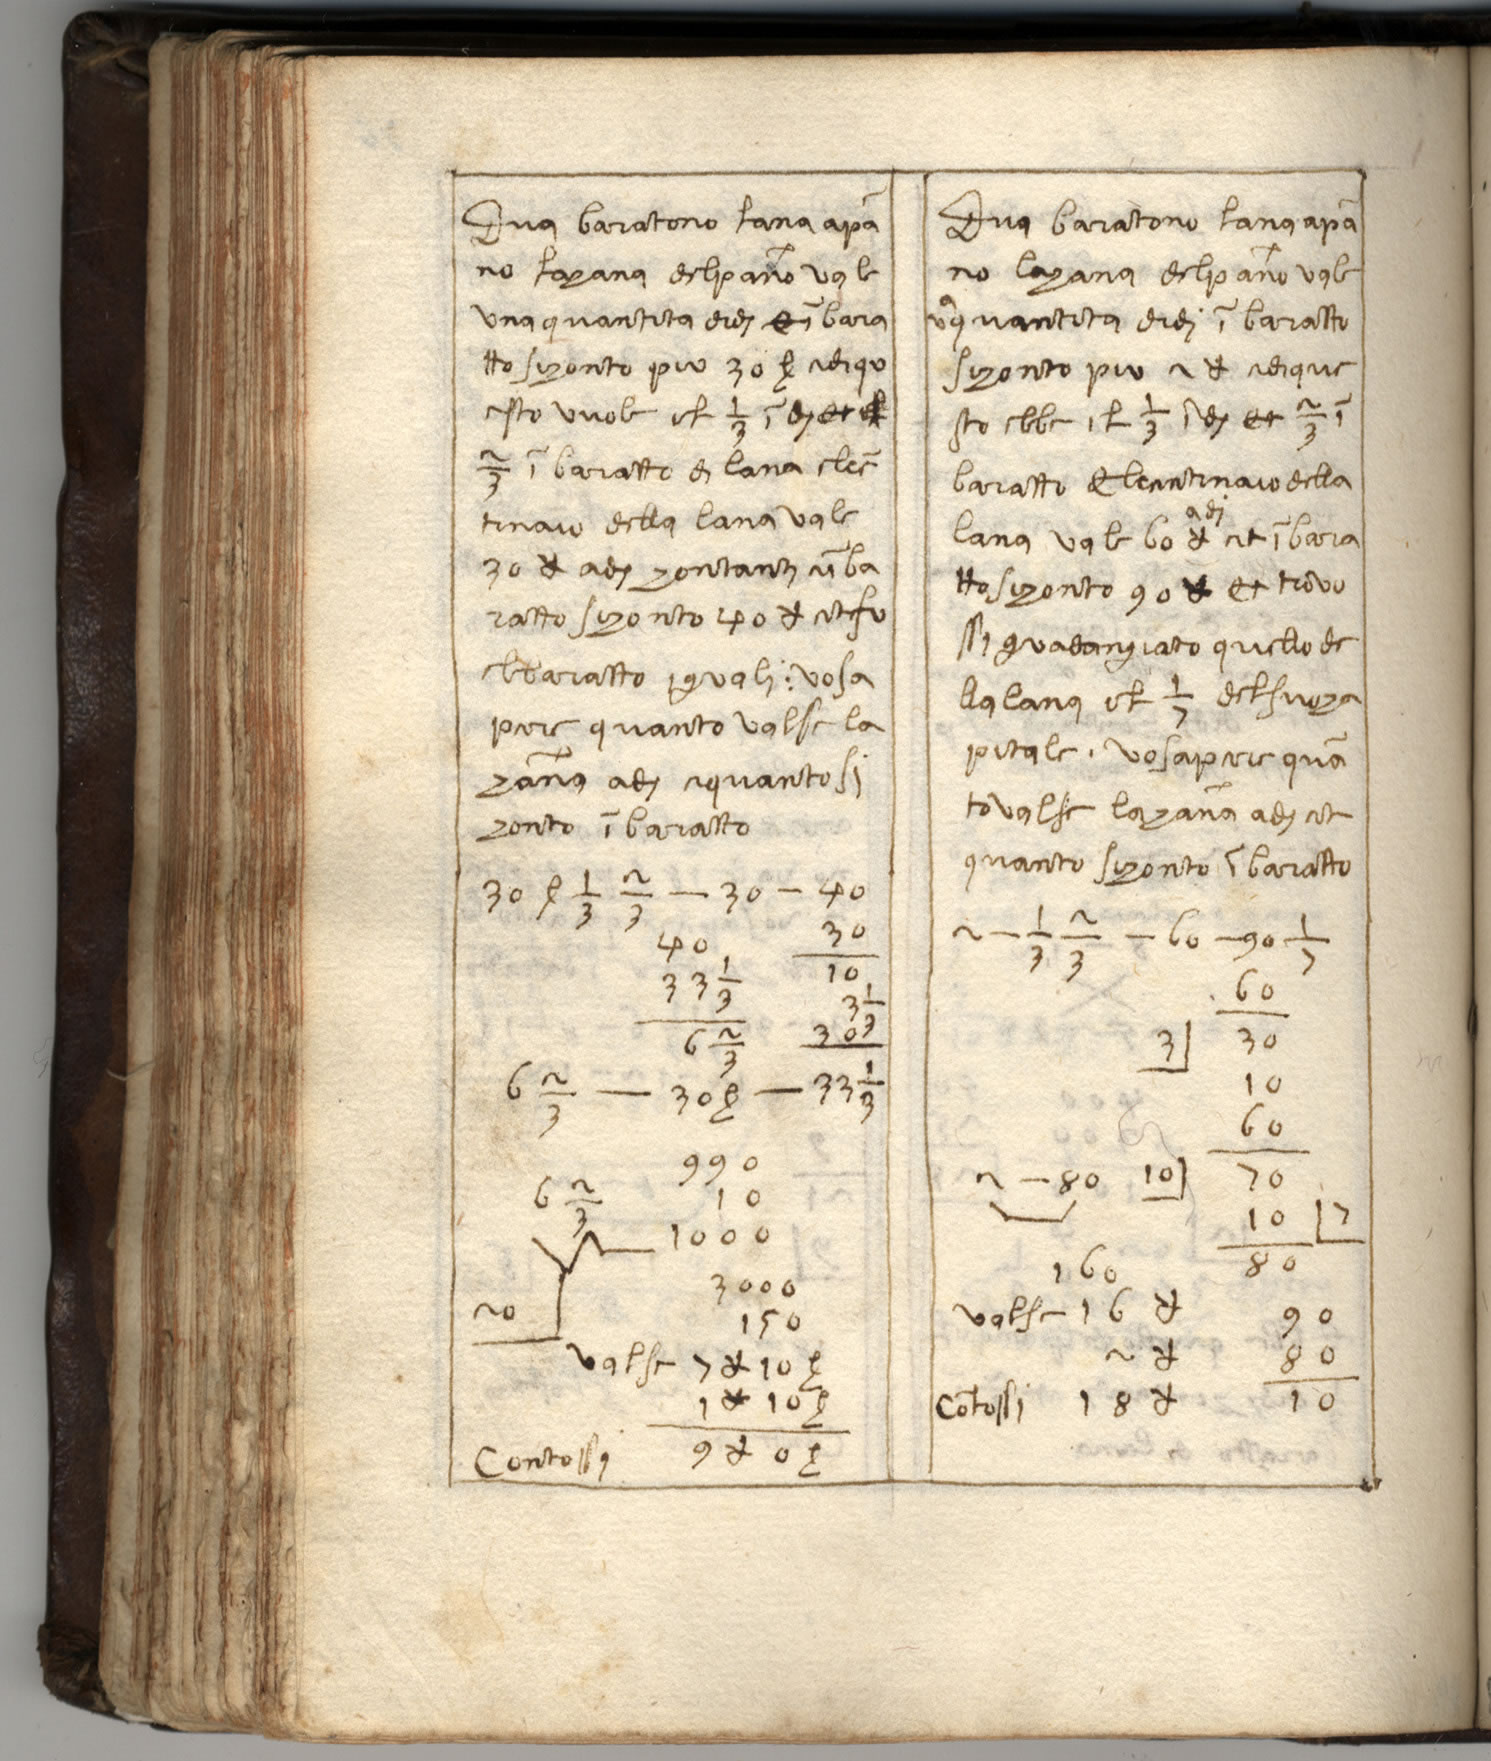 Dua baratono lana apā
no lazana delpan̄o vale
vna quantita didj ī bara
tto sizonto piu 30 ꝭ edi qu
esto vuole el 1/3 ī dj et el
2/3 ī baratto di lana elcē
tinaio della lana vale
30 ꝟ adj zontanti eī ba
ratto sizonto 40 ꝟ et fu
el baratto iguali: vosa
pere quanto valse la
zan̄a adj equanto si
zonto ī baratto
30 ꝭ 1/3 2/3 — 30 — 40
40 30
33 1/3 10
3 1/3
6 2/3 30
6 2/3 — 30 ꝭ — 33 1/3
990
6 2/3 10
1000
3000
20 150
valse 7 ꝟ 10 ꝭ
1 ꝟ 10 ꝭ
Contossi 9 ꝟ 0 ꝭ
Dua baratono lana apā
no lazana delpan̄o vale
vā quantita didj ī baratto
sizonto piu 2 ꝟ edi que
sto ebbe il 1/3 ī dj et 2/3 ī
baratto el centinaio della
lana vale 60 ꝟ adj et ī bara
tto sizonto 90 ꝟ et trovo
ssi guadangiato quello de
lla lana el 1/7 del suo za
pitale. vosapere quā
to valse lazan̄a adj et
quanto sizonto ī baratto
2 — 1/3 2/3 — 60 — 90 1/7
60
3 30
10
60
2 — 80 10 70
10 7
160 80
valse 16 ꝟ 90
2 ꝟ 80
Cōtossi 18 ꝟ 10